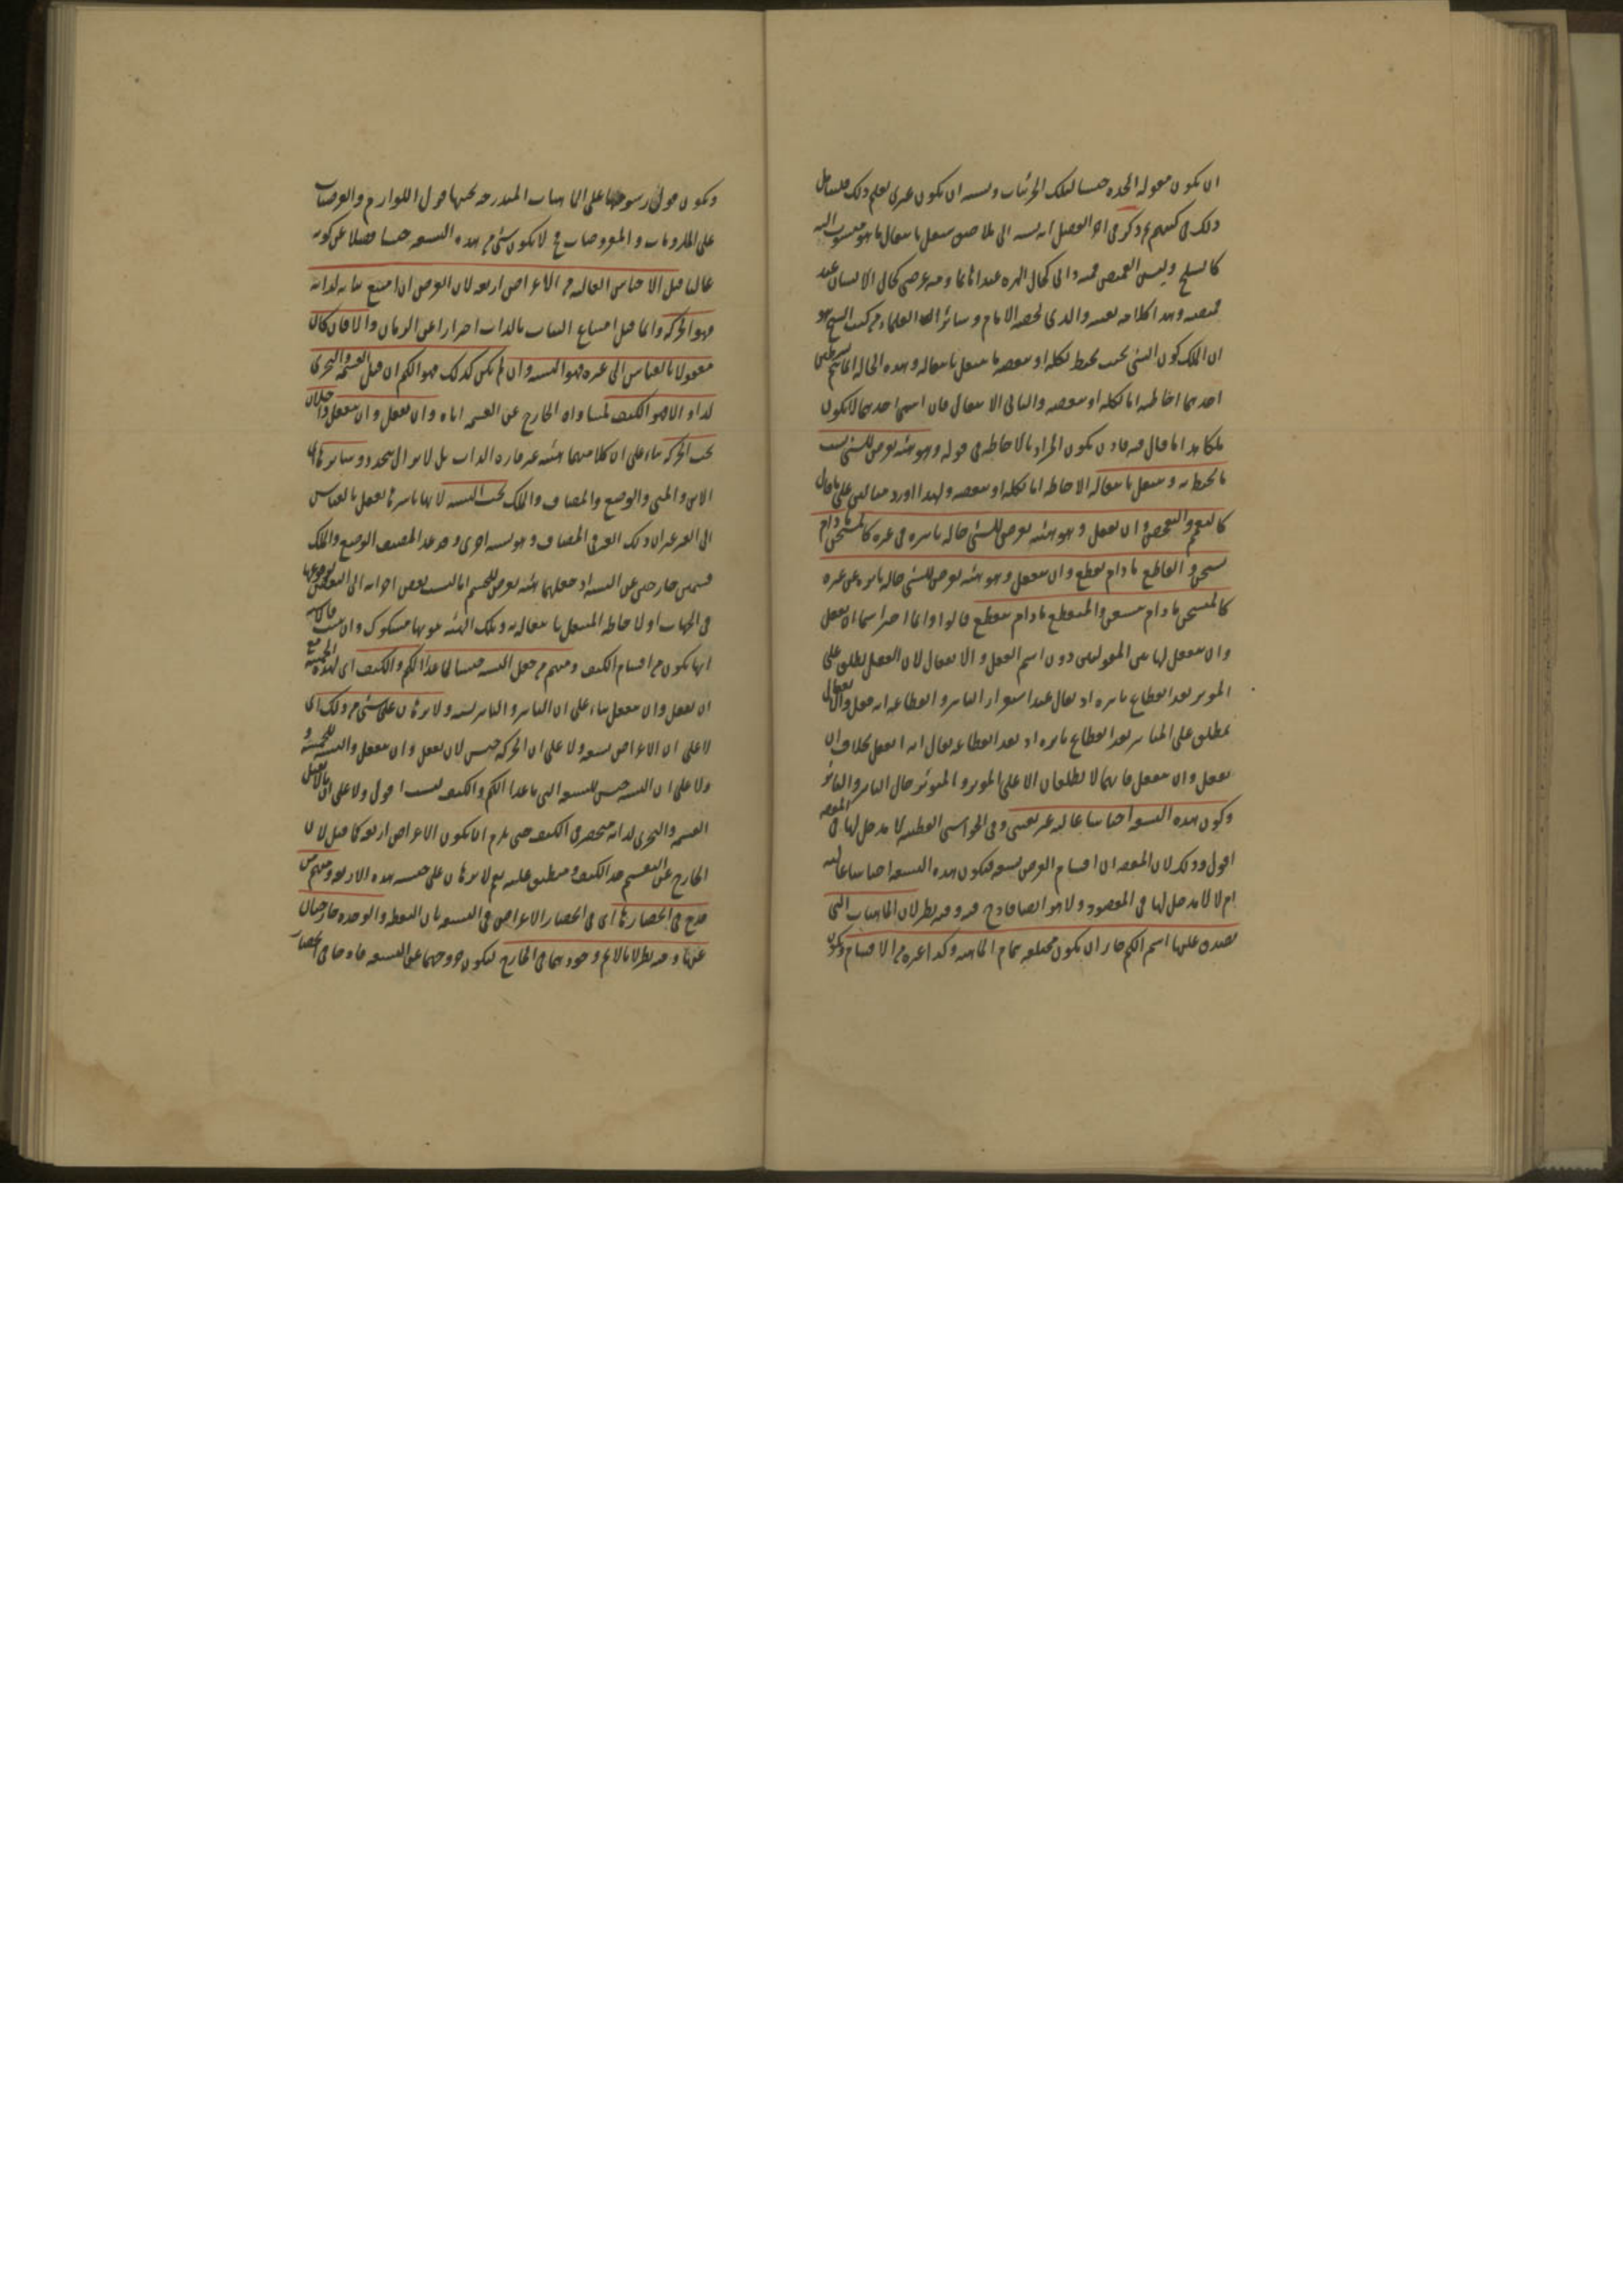 ان يكون مقولة الجدة جنسا لتلك الجزئيات ويشبه ان يكون غيرى يعلم ذلك فليتأمل
ذلك فى كتبهم وذكر فى اخر الفصل انه نسبة الى ملاصق ينتقل بانتقال ما هو منسوب اليه
كالتسلح وليس القميص فمنه ذاتى كحال الهرة عند اهابها ومنه عرضى كحال الانسان عند
قميصه وهذا كلامه بعينه والذى لخصه الامام وسائر العلماء من كتب الشيخ هو
ان الملك كون الشئ بحيث يحيط بكله او ببعضه ما ينتقل بانتقاله وهذه الحالة انما تتم
احدهما احاطته اما بكله او ببعضه والثانى الانتقال فان انتفى احدهما لا يكون
ملكا هذا ما قال فيه فاذن يكون المراد بالاحاطة فى قوله وهو هيئة تعرض للشئ بسبب
ما يحيط به وينتقل بانتقاله الاحاطة اما بكله او ببعضه ولهذا اورد مثالين على ما قال
كالتعمم والتقمص وان يفعل وهو هيئة تعرض للشئ حالة تاثيره فى غيره كالمسخن ما دام
يسخن والقاطع ما دام يقطع وان ينفعل وهو هيئة تعرض للشئ حالة تاثره عن غيره
كالمتسخن ما دام يتسخن والمنقطع ما دام ينقطع قالوا وانما اختير اسما ان يفعل
وان ينفعل لهاتين المقولتين دون اسم الفعل والانفعال لان الفعل يطلق على
الموثر بعد انقطاع تاثيره اذ يقال عند استقرار التاثير وانقطاعه انه فعل والانفعال
يطلق على المتاثر بعد انقطاع تاثره اذ بعد انقطاعه يقال انه انفعل بخلاف ان
يفعل وان ينفعل فانهما لا يطلقان الا على الموثر والمتوثر حال التاثير والتاثر
وكون هذه التسعة اجناسا عالية غير يقينى وفى الحواشى القطبية لا مدخل لها فى المقصود
اقول وذلك لان المقصود ان اقسام العرض تسعة فكون هذه التسعة اجناسا عالية
ام لا لا مدخل لها فى المقصود ولا هو ايضا قادح فيه وفيه نظر لان الماهيات التى
يصدق عليها اسم الكم جاز ان يكون مختلفة بتمام الماهية وكذا غيره من الاقسام ويكون
ويكون قول رسومها على الماهيات المندرجة تحتها قول اللوازم والعرضيات
على الملزومات والمعروضات فح لا يكون شئ من هذه التسعة جنسا فضلا عن كونه
عاليا قيل الاجناس العالية من الاعراض اربعة لان العرض ان امتنع ثباته لذاته
فهو الحركة وانما قيل امتناع الثبات بالذات احترازا عن الزمان والا فان كان
معقولا بالقياس الى غيره فهو النسبة وان لم يكن كذلك فهو الكم ان قبل القسمة والتجزى
لذاته والا فهو الكيف لمساواة الخارج عن القسمة اياه وان يفعل وان ينفعل داخلان
تحت الحركة بناء على ان كلا منهما هيئة غير قارة الذات بل لا يزال يتجدد وسائرها اى
الاين والمتى والوضع والمضاف والملك تحت النسبة لانها باسرها تعقل بالقياس
الى الغير غير ان ذلك الغير فى المضاف وهو نسبة اخرى وقد عد المصنف الوضع والملك
قسمين خارجين عن النسبة اذ جعلهما هيئة تعرض للجسم اما لنسب بعض اجزائه الى البعض لوقوعها
فى الجهات او لاحاطة المنتقل بانتقاله به وتلك الهيئة ثبوتها مشكوك وان ثبت فامكانه
انها يكون من اقسام الكيف ومنهم من جعل النسبة جنسا لما عدا الكم والكيف اى لهذه الخمسة مع
ان يفعل وان ينفعل بناء على ان التاثير والتاثر نسبة ولا برهان على شئ من ذلك اى
لا على ان الاعراض تسعة ولا على ان الحركة جنس لان يفعل وان ينفعل والنسبة للخمسة و
ولا على ان النسبة جنس للسبعة التى ما عدا الكم والكيف ليست اقول ولا على ان ما لا يقبل
القسمة والتجزى لذاته منحصر فى الكيف حتى يلزم ان يكون الاعراض اربعة كما قيل لان
الخارج عن التقسيم حد الكيف ومنطبق عليه نعم لا برهان على جنسية هذه الاربعة ومنهم من
قدح فى انحصارها اى فى انحصار الاعراض فى التسعة بان النقطة والوحدة خارجتان
عنها وفيه نظر لانا لا نم وجودهما فى الخارج ليكون خروجهما عن التسعة قادحا فى انحصار